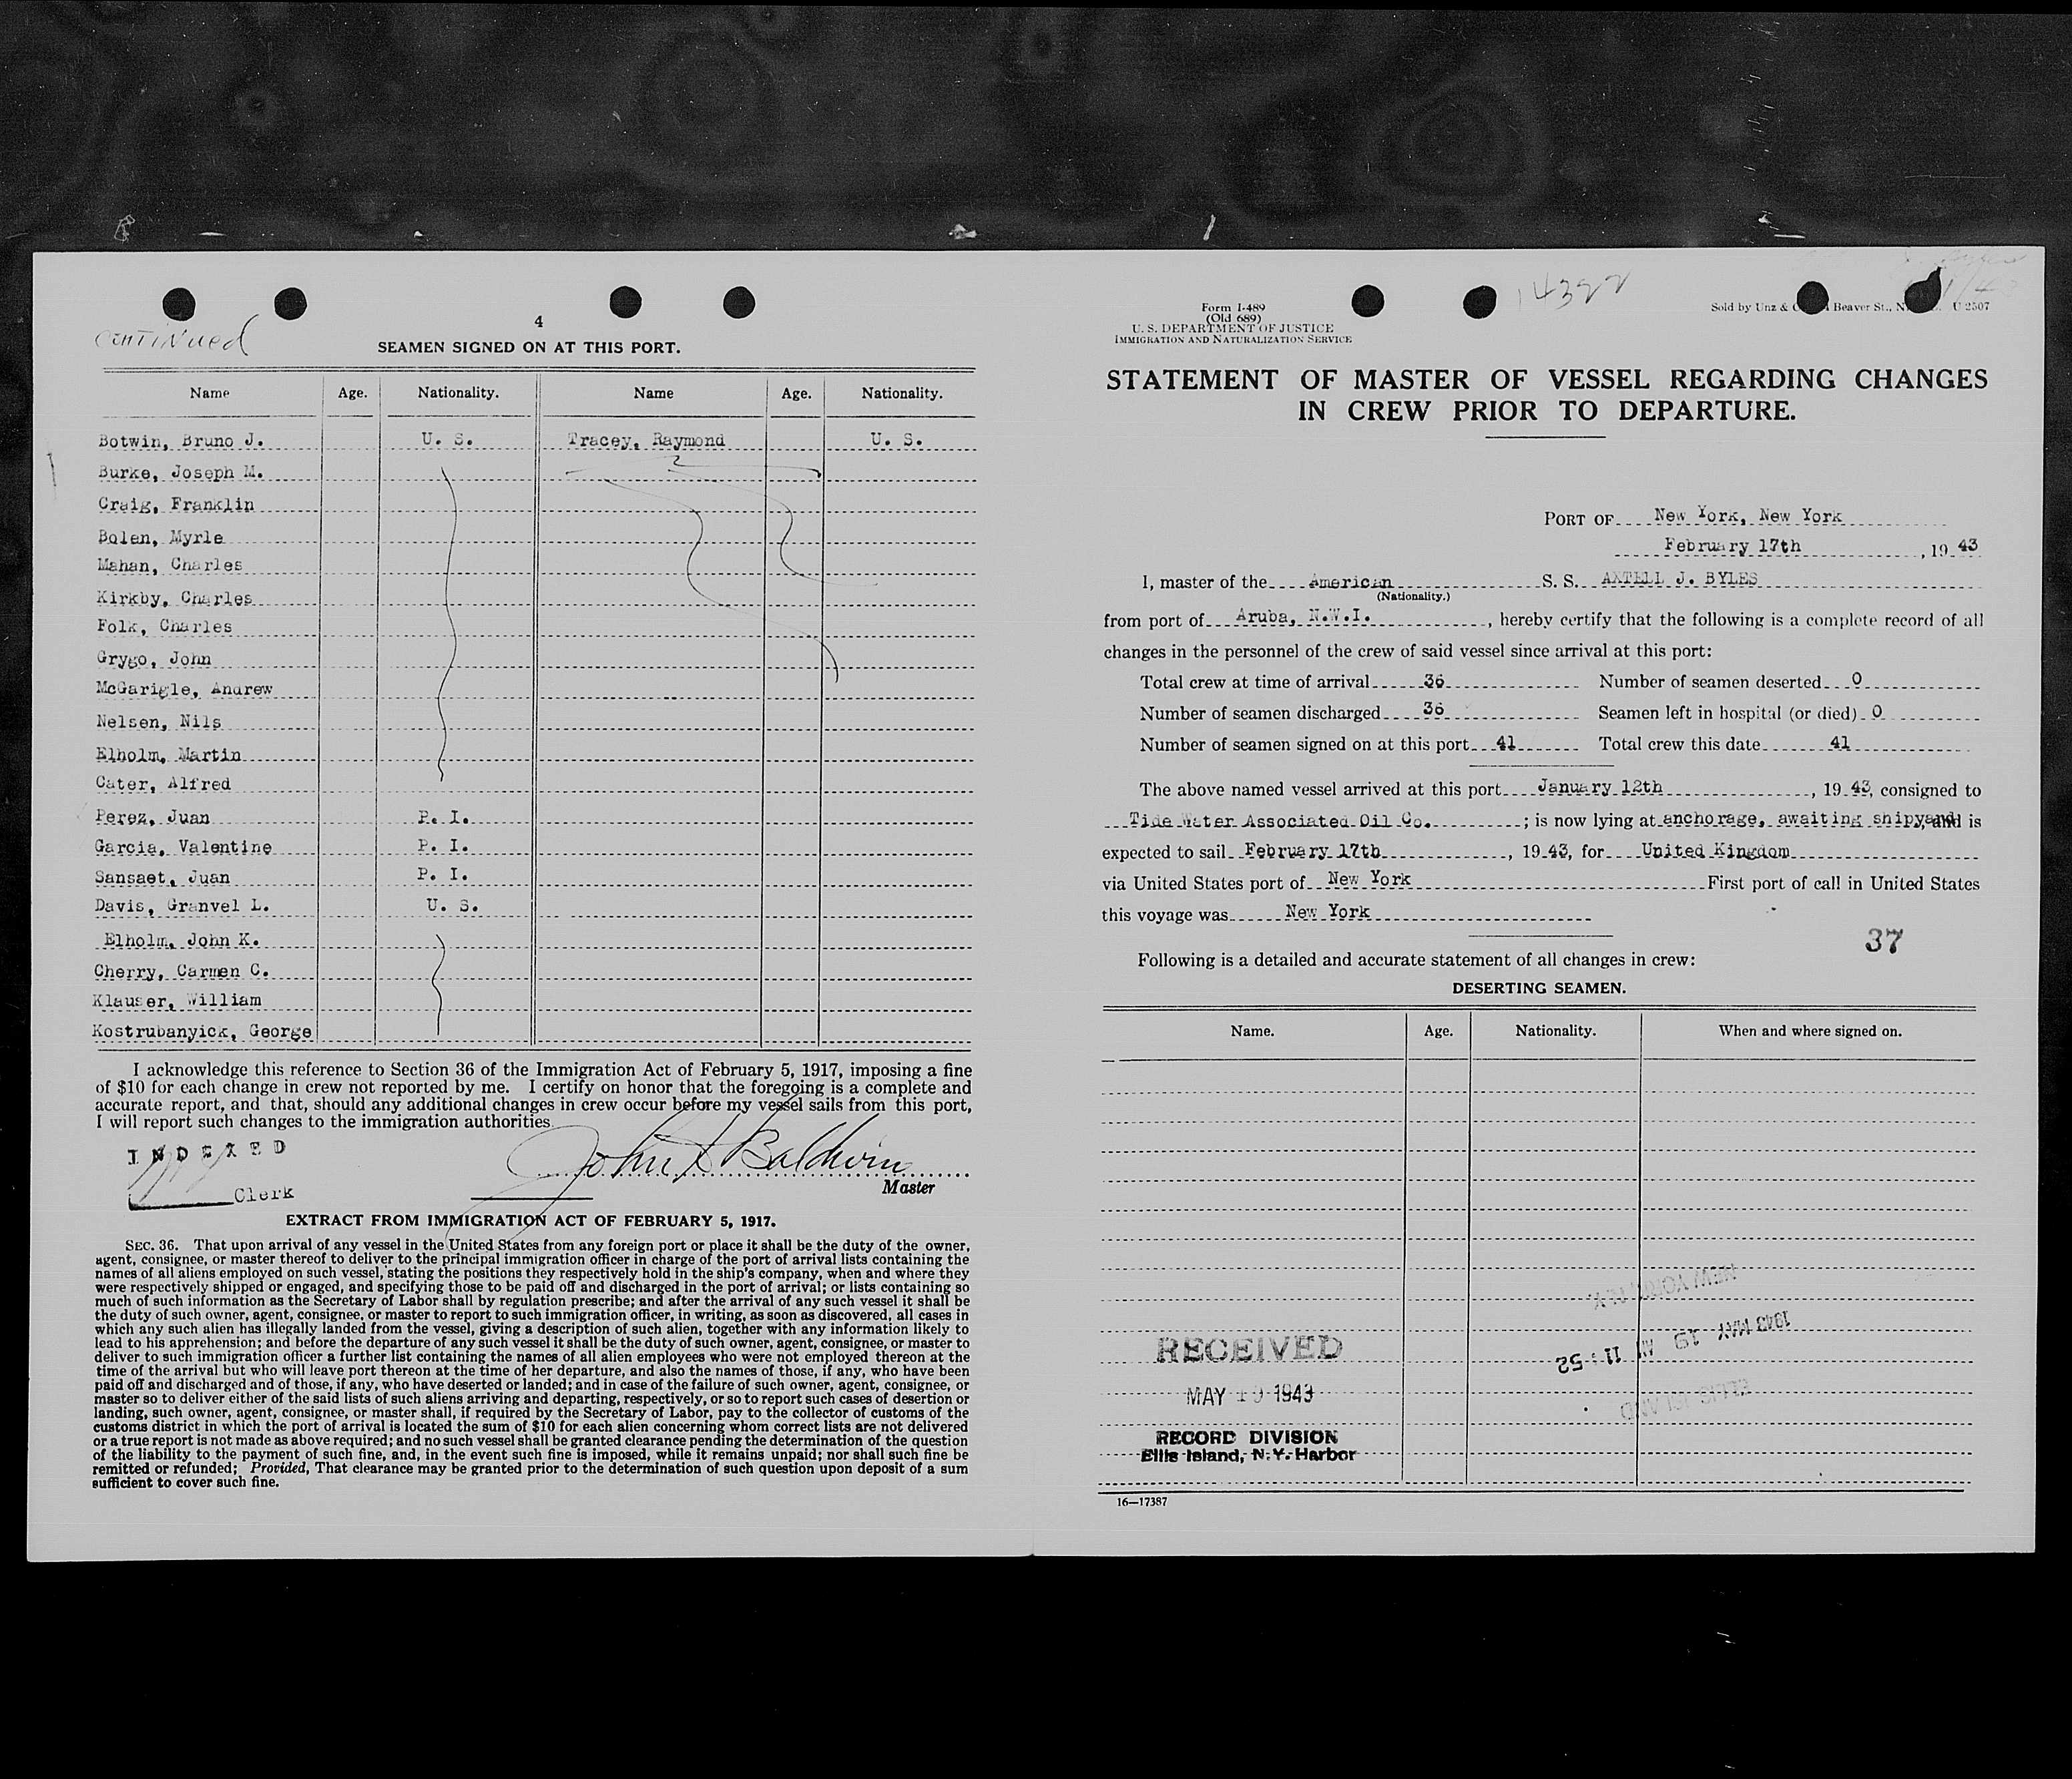 4
continued
SEAMEN SIGNED ON AT THIS PORT.
Name Age. Nationality. Name Age. Nationality.
Botwin, Bruno J. U. S. Tracey, Raymond U. S.
Burke, Joseph M.
Craig, Franklin
Bolen, Myrle
Mahan, Charles
Kirkby, Charles
Folk, Charles
Grygo, John
McGarigle, Andrew
Nelsen, Nils
Elholm, Martin
Cater, Alfred
Perez, Juan P. I.
Garcia, Valentine P. I.
Sansaet, Juan P. I.
Davis, Granvel L. U. S.
Elholm, John K.
Cherry, Carmen C.
Klauser, William
Kostrubanyick, George
I acknowledge this reference to Section 36 of the Immigration Act of February 5, 1917, imposing a fine
of $10 for each change in crew not reported by me. I certify on honor that the foregoing is a complete and
accurate report, and that, should any additional changes in crew occur before my vessel sails from this port,
I will report such changes to the immigration authorities.
INDEXED
Clerk
John Baldwin
Master
EXTRACT FROM IMMIGRATION ACT OF FEBRUARY 5, 1917.
SEC. 36. That upon arrival of any vessel in the United States from any foreign port or place it shall be the duty of the owner,
agent, consignee, or master thereof to deliver to the principal immigration officer in charge of the port of arrival lists containing the
names of all aliens employed on such vessel, stating the positions they respectively hold in the ship's company, when and where they
were respectively shipped or engaged, and specifying those to be paid off and discharged in the port of arrival; or lists containing so
much of such information as the Secretary of Labor shall by regulation prescribe; and after the arrival of any such vessel it shall be
the duty of such owner, agent, consignee, or master to report to such immigration officer, in writing, as soon as discovered, all cases in
which any such alien has illegally landed from the vessel, giving a description of such alien, together with any information likely to
lead to his apprehension; and before the departure of any such vessel it shall be the duty of such owner, agent, consignee, or master to
deliver to such immigration officer a further list containing the names of all alien employees who were not employed thereon at the
time of the arrival but who will leave port thereon at the time of her departure, and also the names of those, if any, who have been
paid off and discharged and of those, if any, who have deserted or landed; and in case of the failure of such owner, agent, consignee, or
master so to deliver either of the said lists of such aliens arriving and departing, respectively, or so to report such cases of desertion or
landing, such owner, agent, consignee, or master shall, if required by the Secretary of Labor, pay to the collector of customs of the
customs district in which the port of arrival is located the sum of $10 for each alien concerning whom correct lists are not delivered
or a true report is not made as above required; and no such vessel shall be granted clearance pending the determination of the question
of the liability to the payment of such fine, and, in the event such fine is imposed, while it remains unpaid; nor shall such fine be
remitted or refunded; Provided, That clearance may be granted prior to the determination of such question upon deposit of a sum
sufficient to cover such fine.
14322
Form I-489
(Old 689)
U. S. DEPARTMENT OF JUSTICE
IMMIGRATION AND NATURALIZATION SERVICE
Sold by Unz & Beaver St., N U 2507
STATEMENT OF MASTER OF VESSEL REGARDING CHANGES
IN CREW PRIOR TO DEPARTURE.
PORT OF New York, New York
February 17th, 19 43
I, master of the American S. S. AXTELL J. BYLES
(Nationality.)
from port of Aruba, N.W.I., hereby certify that the following is a complete record of all
changes in the personnel of the crew of said vessel since arrival at this port:
Total crew at time of arrival 36 Number of seamen deserted 0
Number of seamen discharged 36 Seamen left in hospital (or died) 0
Number of seamen signed on at this port 41 Total crew this date 41
The above named vessel arrived at this port January 12th, 19 43, consigned to
Tide Water Associated Oil Co.; is now lying at anchorage, awaiting shipyard, and is
expected to sail February 17th, 19 43, for United Kingdom
via United States port of New York First port of call in United States
this voyage was New York
37
Following is a detailed and accurate statement of all changes in crew:
DESERTING SEAMEN.
Name. Age. Nationality. When and where signed on.
NEW YORK
1943 MAY 19 AM 11:52
ELLIS ISLAND
RECEIVED
MAY 19 1943
RECORD DIVISION
Ellis Island, N.Y. Harbor
16—17387